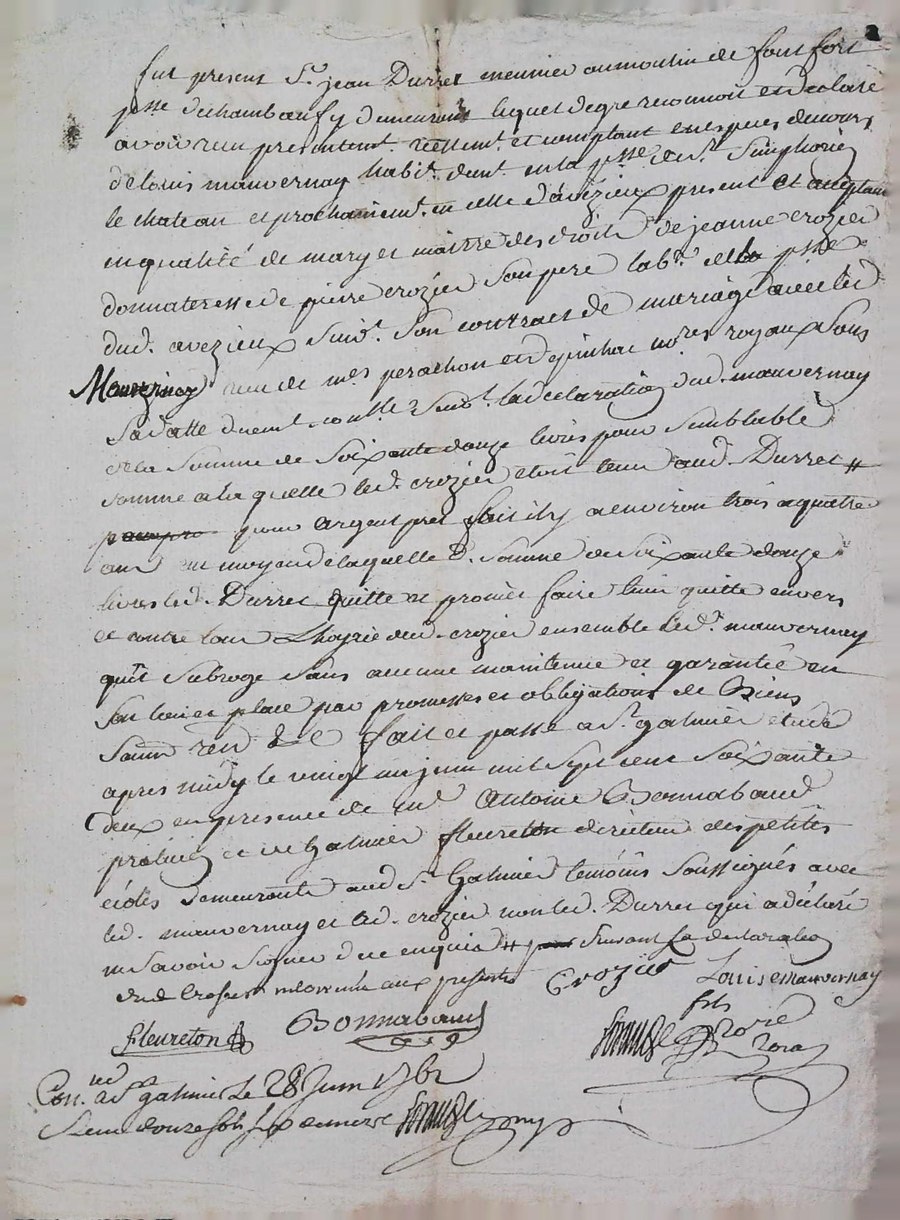 fut present Sr. jean Durret meunier au moulin de font fort
psse. de chambœuf y demeurant lequel de gré reconnoit et declare
avoir reçu presentemt. reellemt. et comptant en especes de cours
de louis mauvernay habit. demt. en la psse. de st. Simphorien
le chateau et prochainemt. en celle d'avézieux present et acceptant
en qualité de mary et maitre des droits de jeanne crozier
donnateresse de pierre crozier son pere labr. de la psse
dud. avezieux suivt. son contract de mariage avec led
Mauvernay reçu de mes perachon et no.res royaux sous
sa datte duemt. contllé suivt. la declaration dud. mauvernay
de la somme de soixante douze livres pour semblable
somme a laquelle led. crozier etoit tenu aud. Durret #
pour argent pret fait il y a environ trois a quatre
ans au moyen de laquelle d. somme de soixante douze
livres led. Durret quitte et promet faire tenir quitte envers
et contre tous l'hoyrie dud. crozier ensemble led. mauvernay
qu'il subroge sans aucune maintenue et garantie en
son lieu et place par promesses et obligations de Biens
soum ren & fait et passé a st. galmier etude
apres midy le vingt un juin mil sept cent soixante
deux en presence de me Antoine Bonnabaud
praticien et de galmier fleureton directeur des petites
écoles demeurants aud. st. Galmier temoins soussignés avec
led. mauvernay et led. crozier non led. Durret qui a déclaré
ne savoir signer de ce enquis # suivant sa declaration
aux presentes
Crozier Louis Mauvernay
fils
fleureton Bonnabaud
Con.lé a st galmier le 28 Juin 1762
Reçu douze sols six deniers